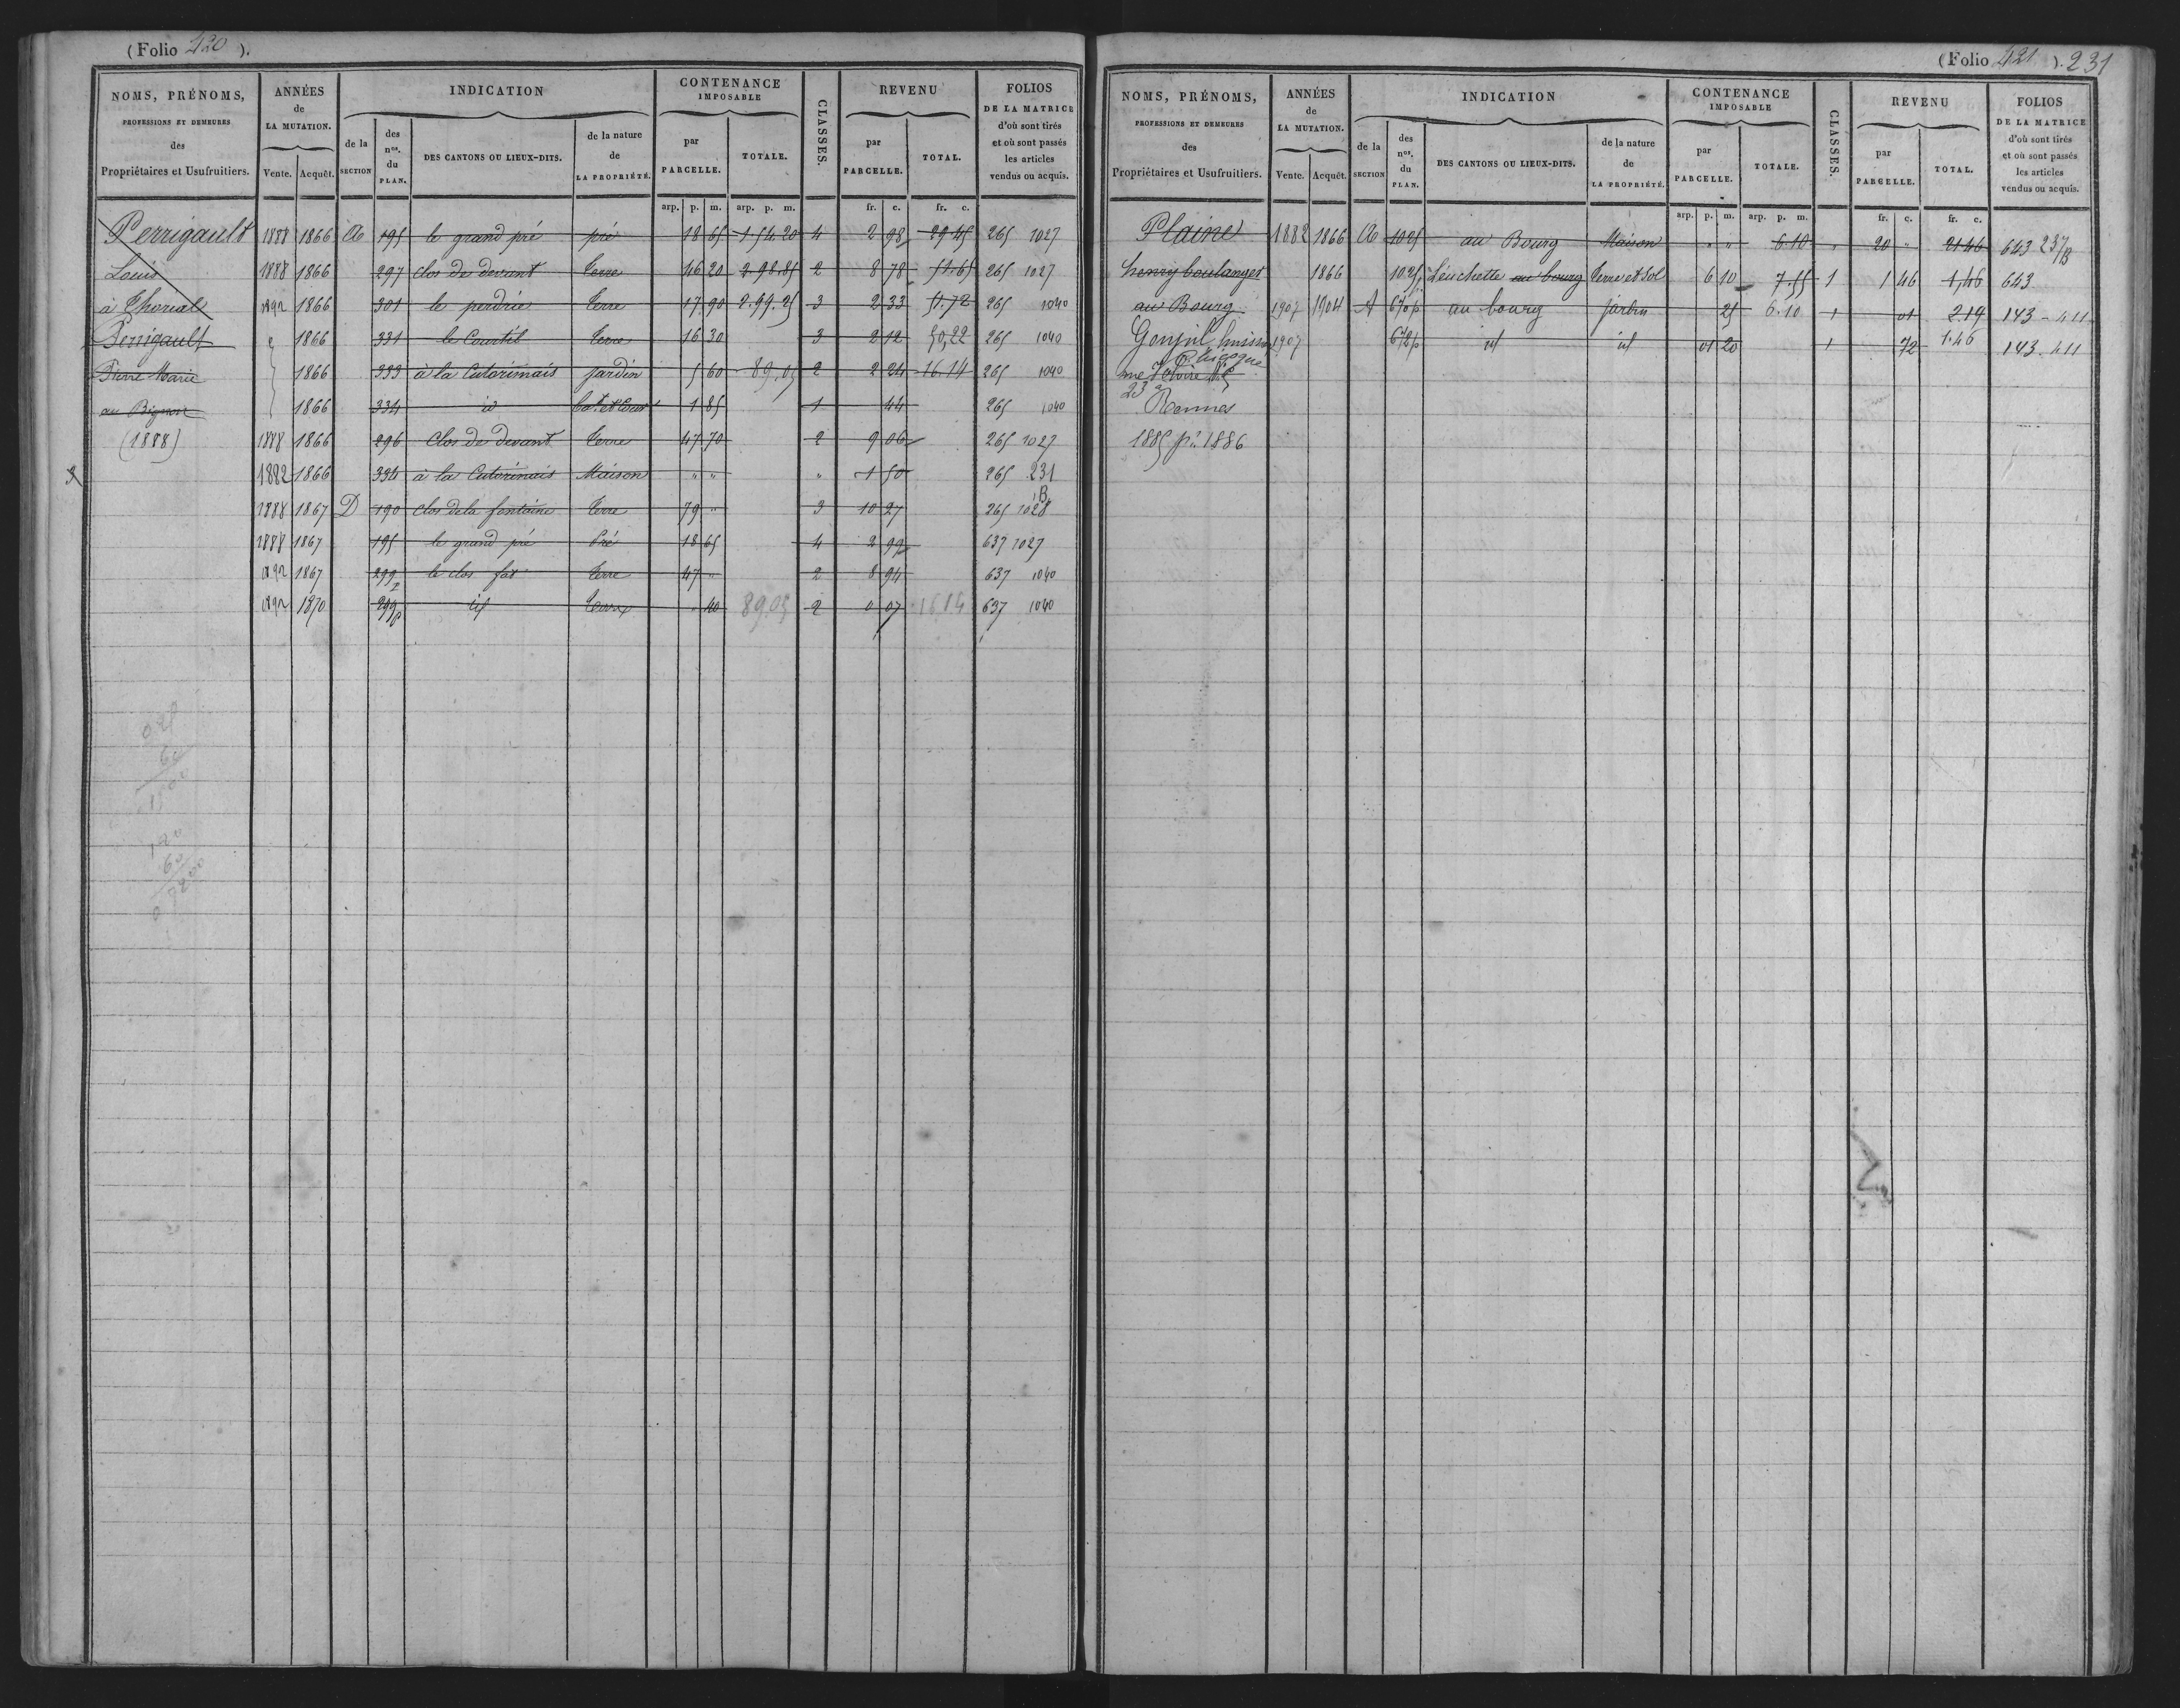 (Folio 420 ).
NOMS, PRÉNOMS, PROFESSIONS ET DEMEURES des Propriétaires et Usufruitiers.
ANNÉES de LA MUTATION. Vente. Acquêt.
INDICATION de la SECTION des nos. du PLAN. DES CANTONS OU LIEUX-DITS. de la nature de LA PROPRIÉTÉ.
CONTENANCE IMPOSABLE par PARCELLE. TOTALE.
CLASSES.
REVENU par PARCELLE. TOTAL.
FOLIOS DE LA MATRICE d'où sont tirés et où sont passés les articles vendus ou acquis.
arp. p. m. arp. p. m. fr. c. fr. c.
Perrigault 1888 1866 A 195 le grand pré pré 18 65 1.54.20 4 2 98 29 45 265 1027
Louis 1888 1866 297 clos de devant terre 46 20 2.98.85 2 8 78 51.65 265 1027
à Thorial 1892 1866 301 le perdrie terre 17 90 2.99.25 3 2 33 51.72 265 1040
Perrigault 1866 331 le Courtil terre 16 30 3 2 12 50,22 265 1040
Pierre Marie 1866 333 à la Cutorimais jardin 5 60 89.05 2 2 24 16.14 265 1040
au Bignon 1866 334 id bat. et cour 1 85 1 44 265 1040
(1888) 1888 1866 296 clos de devant terre 47 70 2 9 06 265 1027
1882 1866 334 à la Cutorimais Maison " " " 1 50 265 231 B
1888 1867 D 190 clos de la fontaine terre 79 " 3 10 27 265 1028
1888 1867 195 le grand pré Pré 18 65 4 2 99 637 1027
1892 1867 299 le clos fas terre 47 " 2 8 94 637 1040
1892 1870 299p id terre " 40 89.05 2 0 07 16.14 637 1040
(Folio 421 ). 231
NOMS, PRÉNOMS, PROFESSIONS ET DEMEURES des Propriétaires et Usufruitiers.
ANNÉES de LA MUTATION. Vente. Acquêt.
INDICATION de la SECTION des nos. du PLAN. DES CANTONS OU LIEUX-DITS. de la nature de LA PROPRIÉTÉ.
CONTENANCE IMPOSABLE par PARCELLE. TOTALE.
CLASSES.
REVENU par PARCELLE. TOTAL.
FOLIOS DE LA MATRICE d'où sont tirés et où sont passés les articles vendus ou acquis.
arp. p. m. arp. p. m. fr. c. fr. c.
Plaine 1882 1866 A 1025 au Bourg Maison " " 6.10 " 20 " 21 46 643 237/B
henry boulanger 1866 1025 Leuchette au bourg terre et sol 6 10 7.55 1 1 46 1,46 643
au Bourg 1907 1904 A 670p au bourg jardin 25 6.10 1 01 2.19 143 - 411
huissier 1907 672p id id 01 20 1 72 1.46 143 - 411
rue
23 a
Rennes
1885 pr. 1886